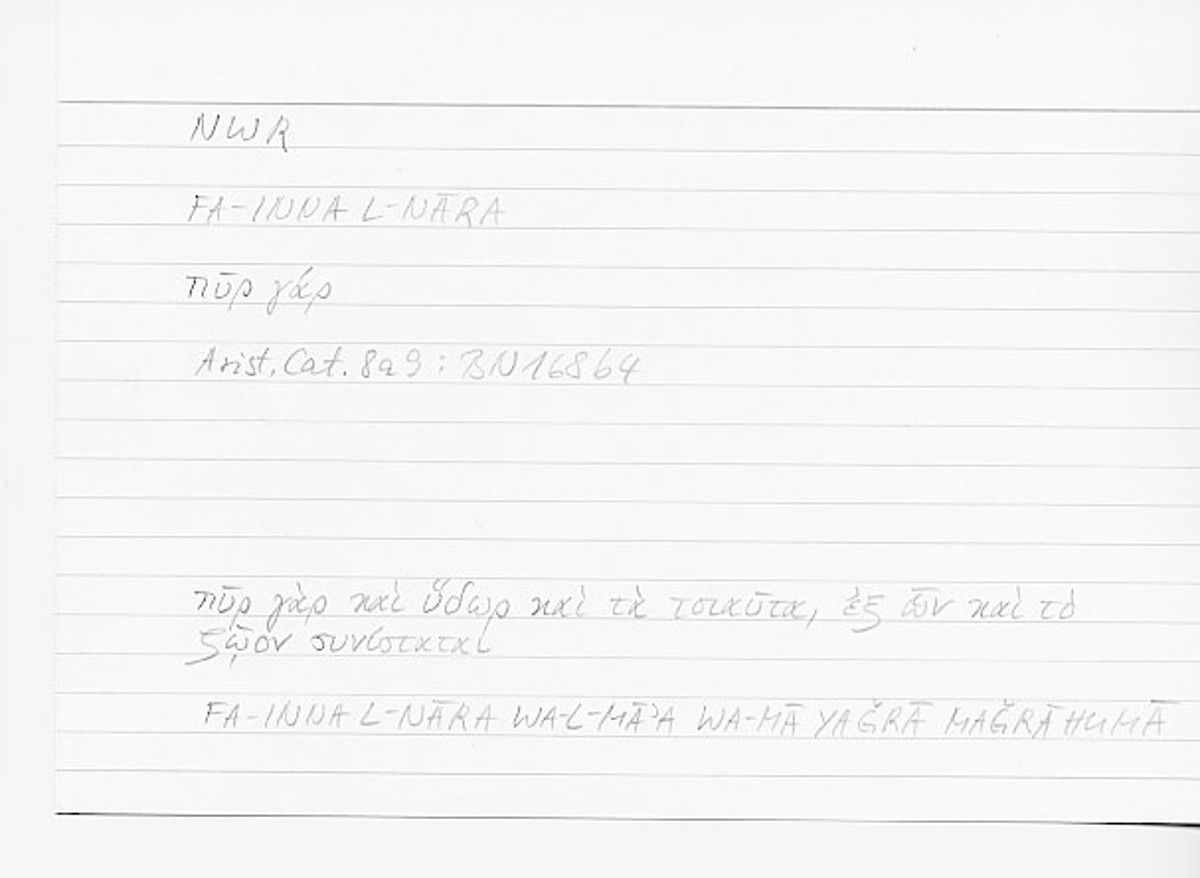 NWR
FA-INNA L-NĀRA
πῦρ γάρ
Arist. Cat. 8a9 : BN16864
πῦρ γὰρ καὶ ὕδωρ καὶ τὰ τοιαῦτα, ἐξ ὧν καὶ τὸ
ζῷον συνίσταται
FA-INNA L-NĀRA WA-L-MĀʾA WA-MĀ YAǦRĀ MAǦRĀHUMĀ